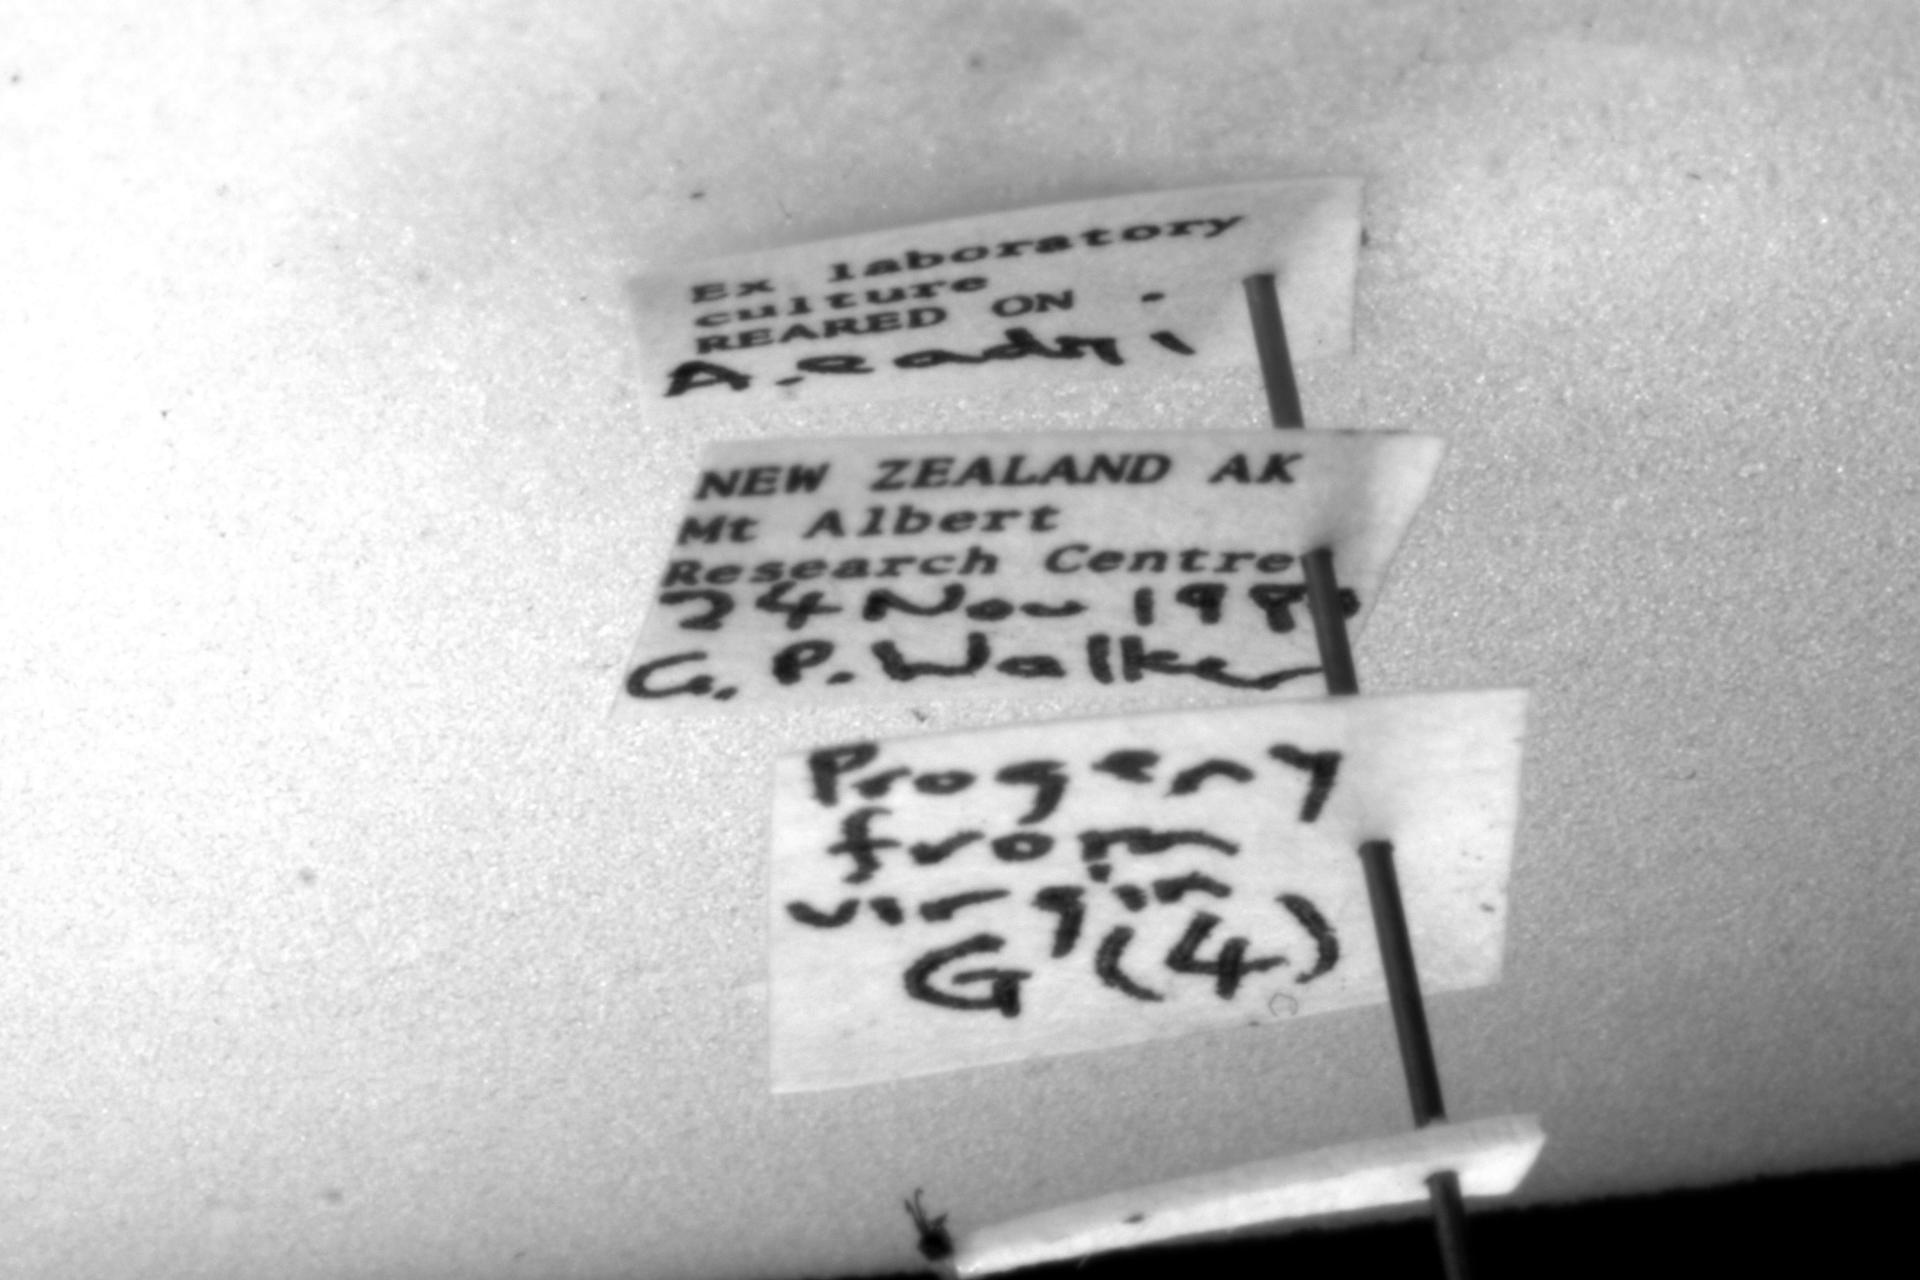 Ex laboratory
culture
REARED ON
A. eadyi
NEW ZEALAND AK
Mt Albert
Research Centre
24 Nov
G. P. Walker
Progeny
from
virgin
G (4)